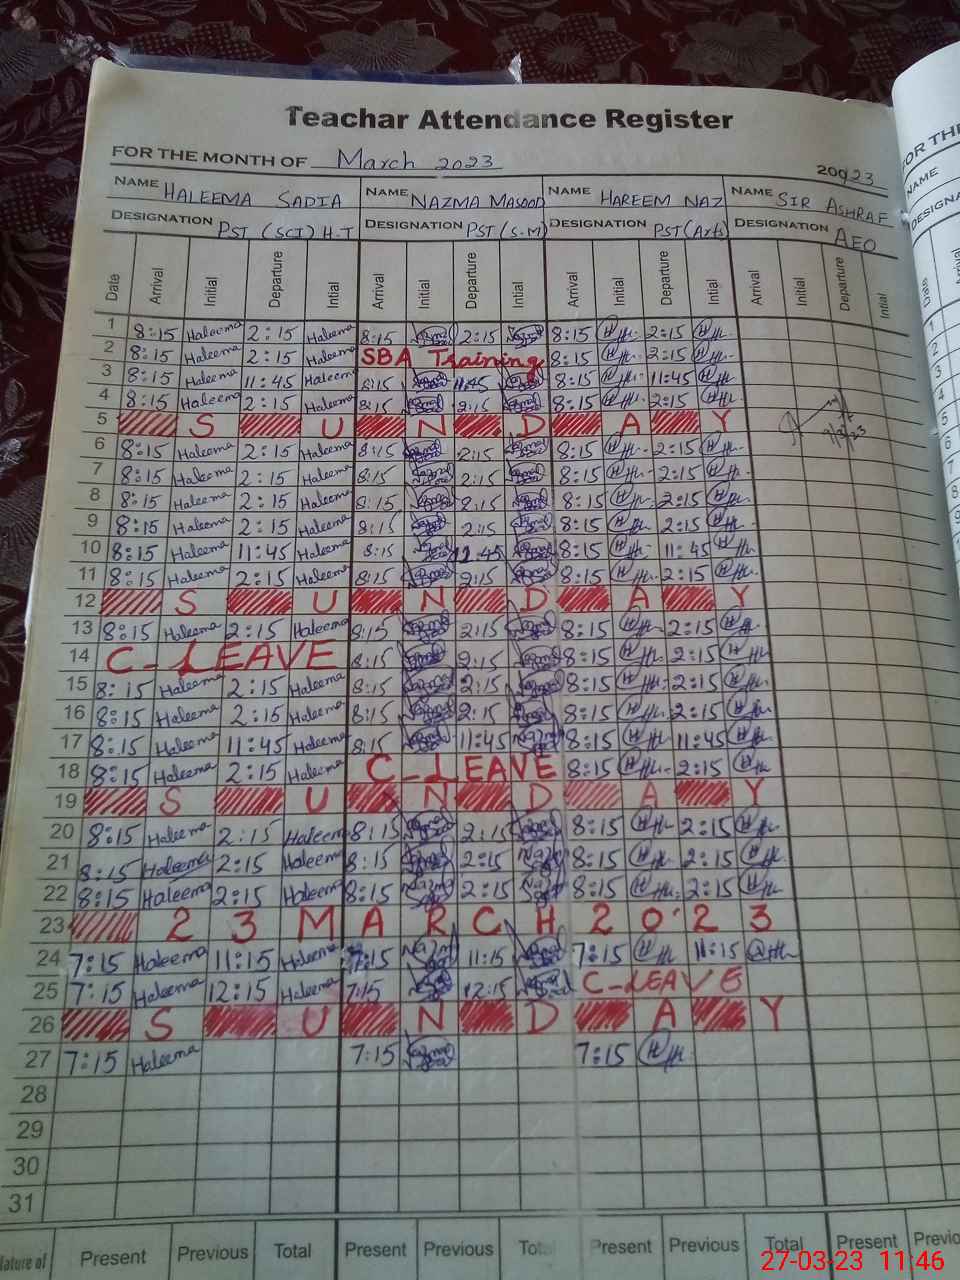 Teachar Attendance Register
FOR THE MONTH OF March 2023
2023
NAME HALEEMA SADIA NAME NAZMA MASOOD NAME HAREEM NAZ NAME SIR ASHRAF
DESIGNATION PST (SCI) H.T DESIGNATION PST (S.M) DESIGNATION PST (Arts) DESIGNATION AEO
Date Arrival Initial Departure Intial Arrival Initial Departure Intial Arrival Initial Departure Intial Arrival Initial Departure Intial
1 8:15 Haleema 2:15 Haleema 8:15 2:15 8:15 2:15
2 8:15 Haleema 2:15 Haleema SBA Training 8:15 2:15
3 8:15 Haleema 11:45 Haleema 8:15 11:45 8:15 11:45
4 8:15 Haleema 2:15 Haleema 8:15 2:15 8:15 2:15
5 S U N D A Y
6 8:15 Haleema 2:15 Haleema 8:15 2:15 8:15 2:15
7 8:15 Haleema 2:15 Haleema 8:15 2:15 8:15 2:15
8 8:15 Haleema 2:15 Haleema 8:15 2:15 8:15 2:15
9 8:15 Haleema 2:15 Haleema 8:15 2:15 8:15 2:15
10 8:15 Haleema 11:45 Haleema 8:15 8:15 11:45
11 8:15 Haleema 2:15 Haleema 8:15 2:15 8:15 2:15
12 S U N D A Y
13 8:15 Haleema 2:15 Haleema 8:15 2:15 8:15 2:15
14 C-LEAVE 8:15 2:15 8:15 2:15
15 8:15 Haleema 2:15 Haleema 8:15 2:15 8:15 2:15
16 8:15 Haleema 2:15 Haleema 8:15 2:15 8:15 2:15
17 8:15 Haleema 11:45 Haleema 8:15 11:45 8:15 11:45
18 8:15 Haleema 2:15 Haleema C-LEAVE 8:15 2:15
19 S U N D A Y
20 8:15 Haleema 2:15 Haleema 8:15 2:15 8:15 2:15
21 8:15 Haleema 2:15 Haleema 8:15 2:15 8:15 2:15
22 8:15 Haleema 2:15 Haleema 8:15 2:15 8:15 2:15
23 2 3 M A R C H 2 0 2 3
24 7:15 Haleema 11:15 Haleema 7:15 11:15 7:15 11:15
25 7:15 Haleema 12:15 Haleema 7:15 12:15 C-LEAVE
26 S U N D A Y
27 7:15 Haleema 7:15 7:15
28
29
30
31
Present Previous Total Present Previous Total Present Previous Total Present
27-03-23 11:46